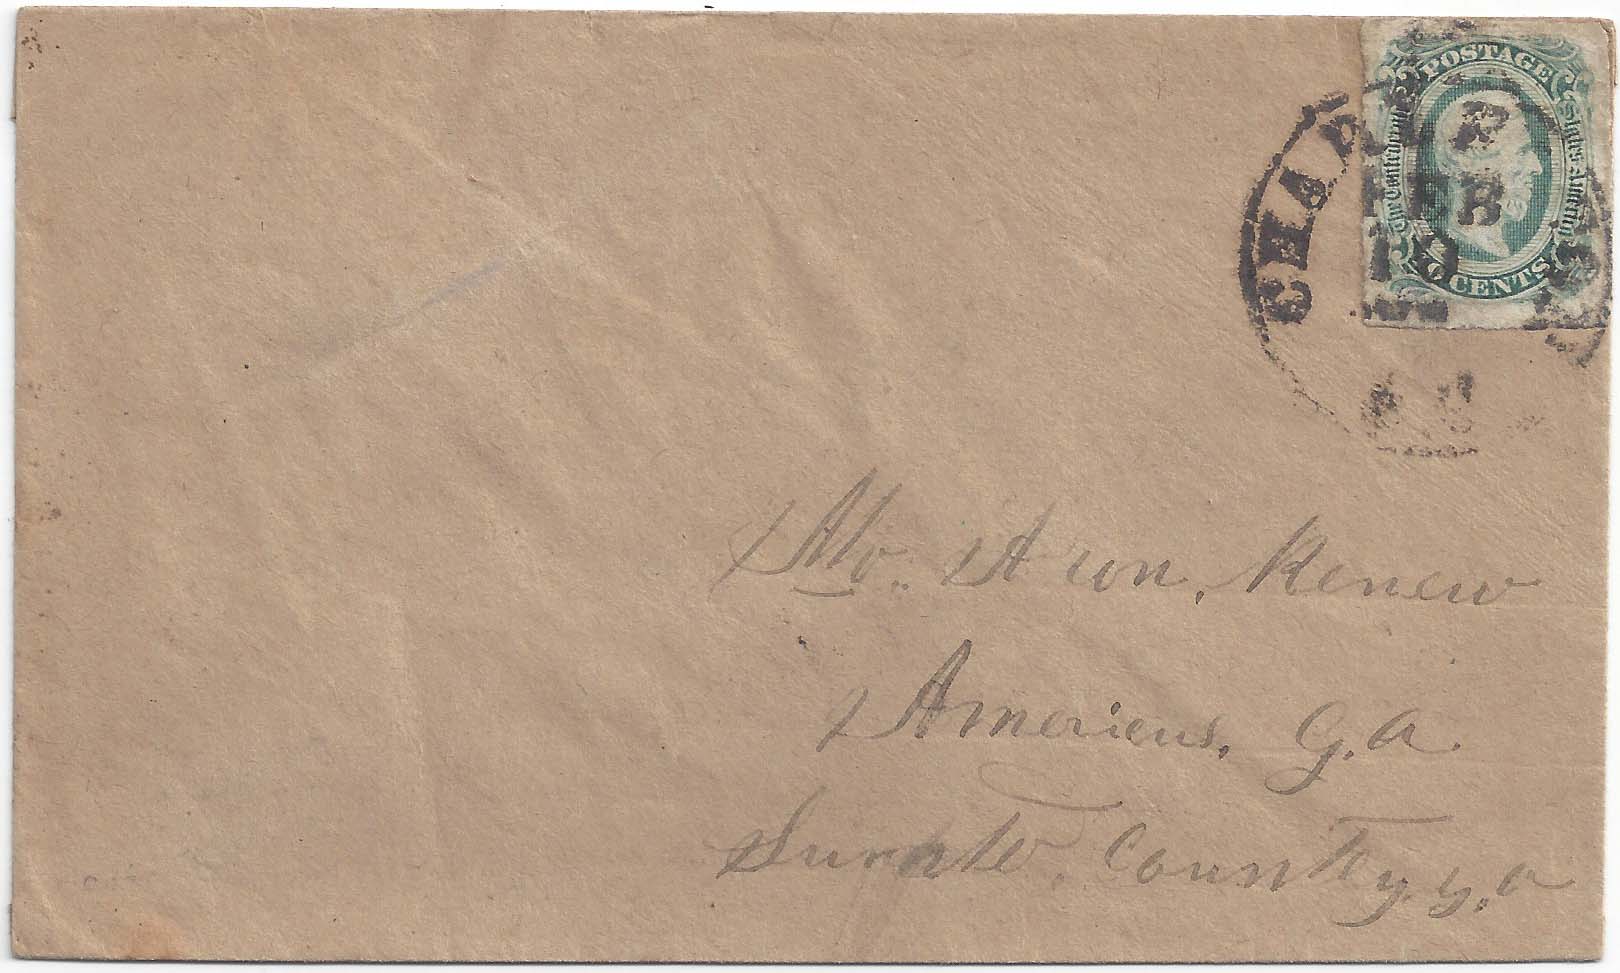 POSTAGE
The Confederate States America
CENTS
FEB
Mr. Aron, Renew
Americus, G.a.
Sumter, County, g,a